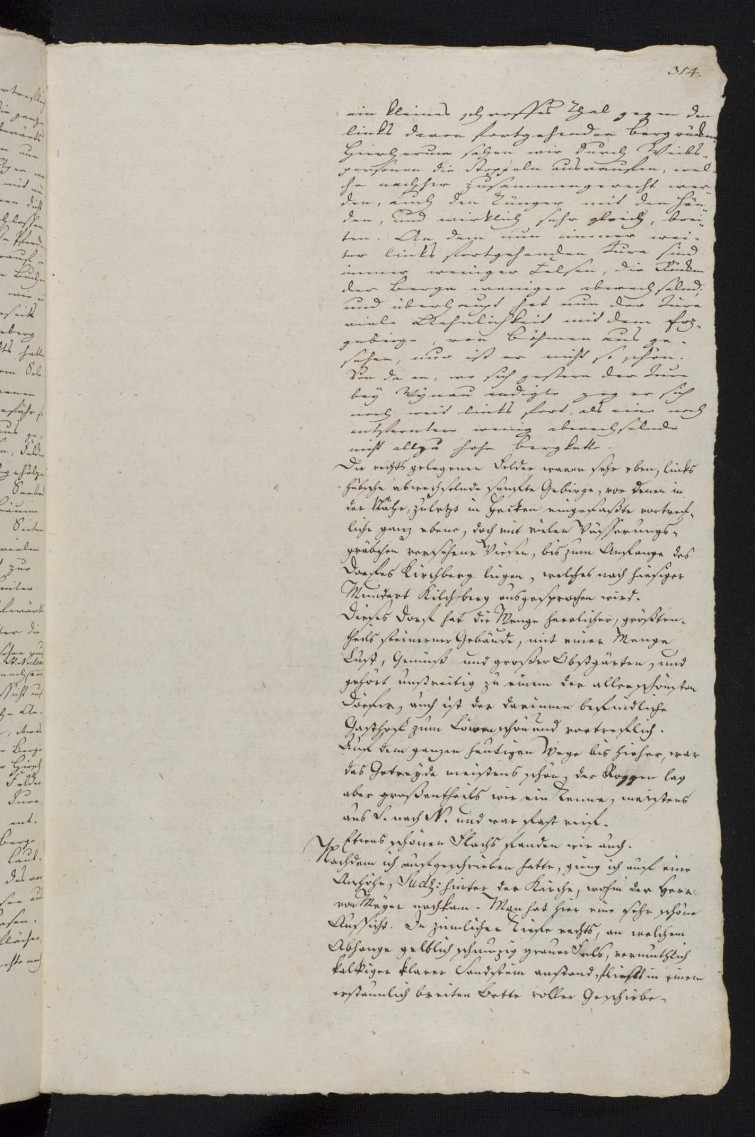 314.
ein kleines schroffes Thal gegen den
links davon fortgehenden Bergrücken
Hierherum sahen wir durch Weibs-
personen die Stoppeln ausraufen, wel-
che nachher zusammengerecht wer-
den, auch den Dünger mit den Hän-
den, und wirklich sehr gleich, brei-
ten. An dem nun immer wei-
ter links fortgehenden Jura sind
immer weniger Felsen, die Rücken
der Berge weniger abwechselnd,
und überhaupt hat nun der Jura
viele Aehnlichkeit mit dem Erz-
gebirge, von Böhmen aus ge-
sehen, nur ist er nicht so schön.
Von da an, wo sich gestern der Jura
bey Wynau endigte zog er sich
noch weit links fort, als eine noch
entferntere wenig abwechselnde
nicht allzu hohe Bergkette.
Die rechts gelegenen Felder waren sehr eben, links
hübsche abwechselnde sanfte Gebirge, vor denen in
der Nähe, zuletzt in Hecken eingefaßte vortref-
liche ganz ebene, doch mit vielen Wässerungs-
gräbchen versehene Wiesen, bis zum Anfange des
Dorfes Kirchberg liegen, welches nach hiesiger
Mundart Kilchberg ausgesprochen wird.
Dieses Dorf hat die Menge herrlicher, größten-
theils steinerner Gebäude, mit einer Menge
Lust, Gemüß und großer Obstgärten, und
gehört unstreitig zu einem der allerschönsten
Dörfer, auch ist der darinnen befindliche
Gasthof zum Löwen schön und vortreflich.
Auf dem ganzen heutigen Wege bis hieher, war
das Getreyde meistens schön, der Roggen lag
aber großentheils wie ein Tenne, meistens
aus S. nach N. und war fast reif.
Etwas schönen Flachs fanden wir auch.
Nachdem ich ausgeschrieben hatte, ging ich auf eine
Anhöhe, Südl: hinter der Kirche, wohin der Herr
von Meyer nachkam. Man hat hier eine sehr schöne
Aussicht. In ziemlicher Tiefe rechts, an welchem
Abhange gelblich schmuzig grauer Fels, vermuthlich
kalkiger klarer Sandstein anstand, fließt in einem
erstaunlich breiten Bette voller Geschiebe,